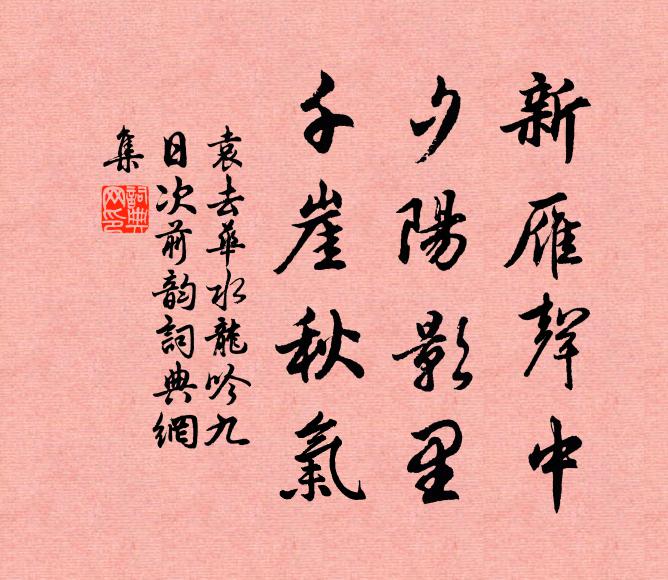 新雁聲中
夕陽影里
千崖秋氣
袁去華水龍吟九
日次前韵詞典網
集
詞典
网印